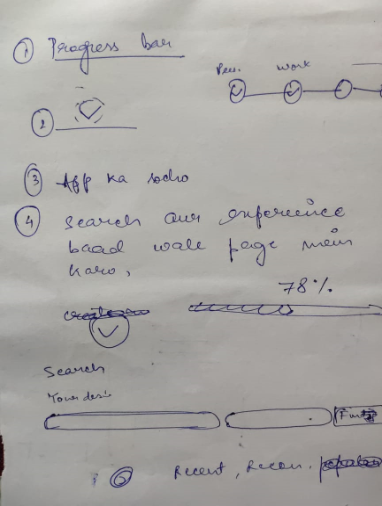 ① Progress bar
Per. work
②
③ App ka socho
④ Search aur experience
baad wale page mein
karo,
78%
Search
Your des
Find
⑥ Recent, Recom.